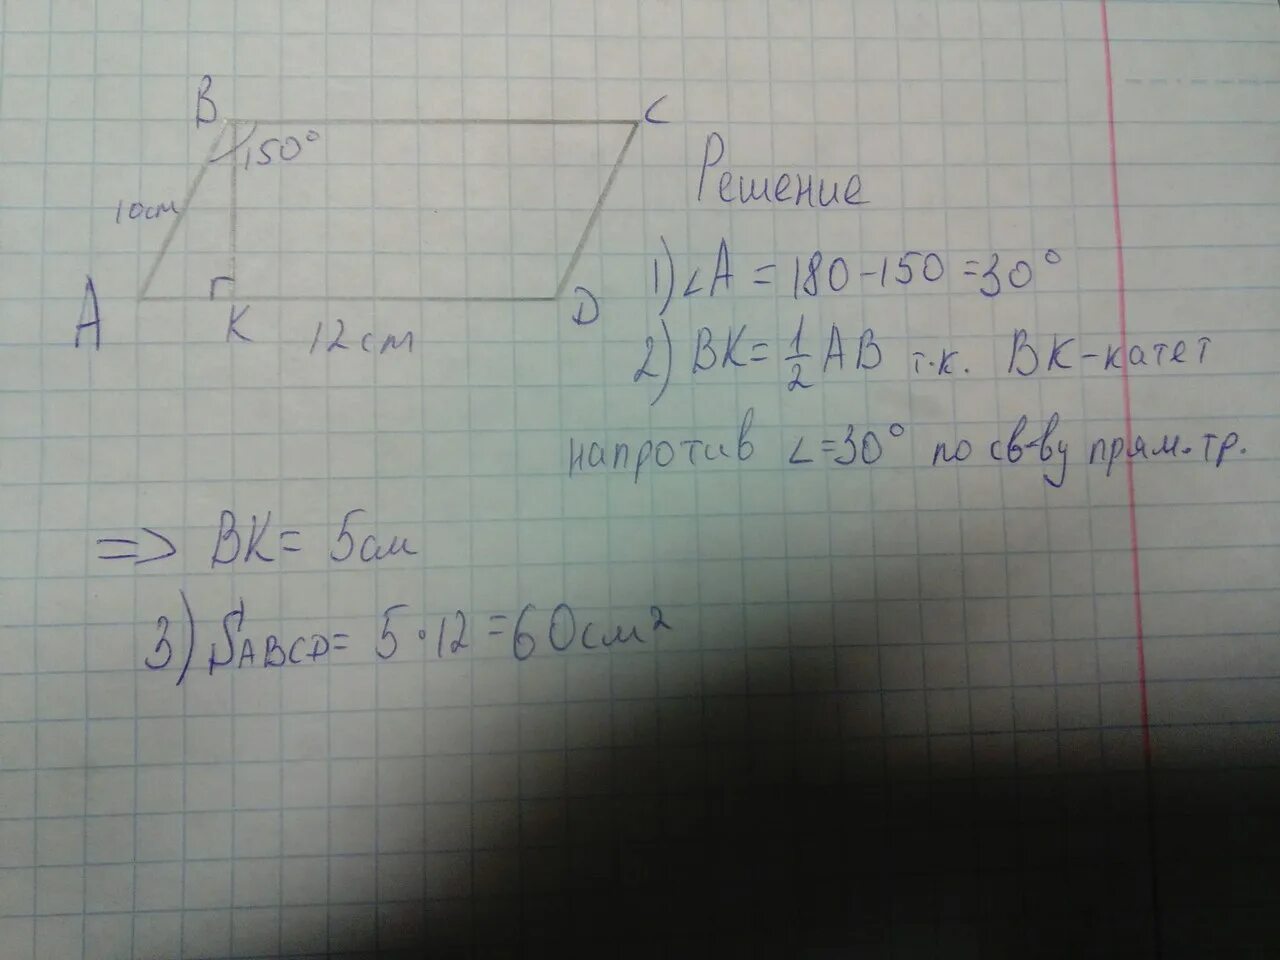 B
C
150°
10см
A
K
12см
D
Решение
1) ∠A = 180-150 =30°
2) BK= 1/2 AB т.к. BK-катет
напротив ∠=30° по св-ву прям.тр.
=> BK= 5см
3) SABCD= 5·12 =60см²